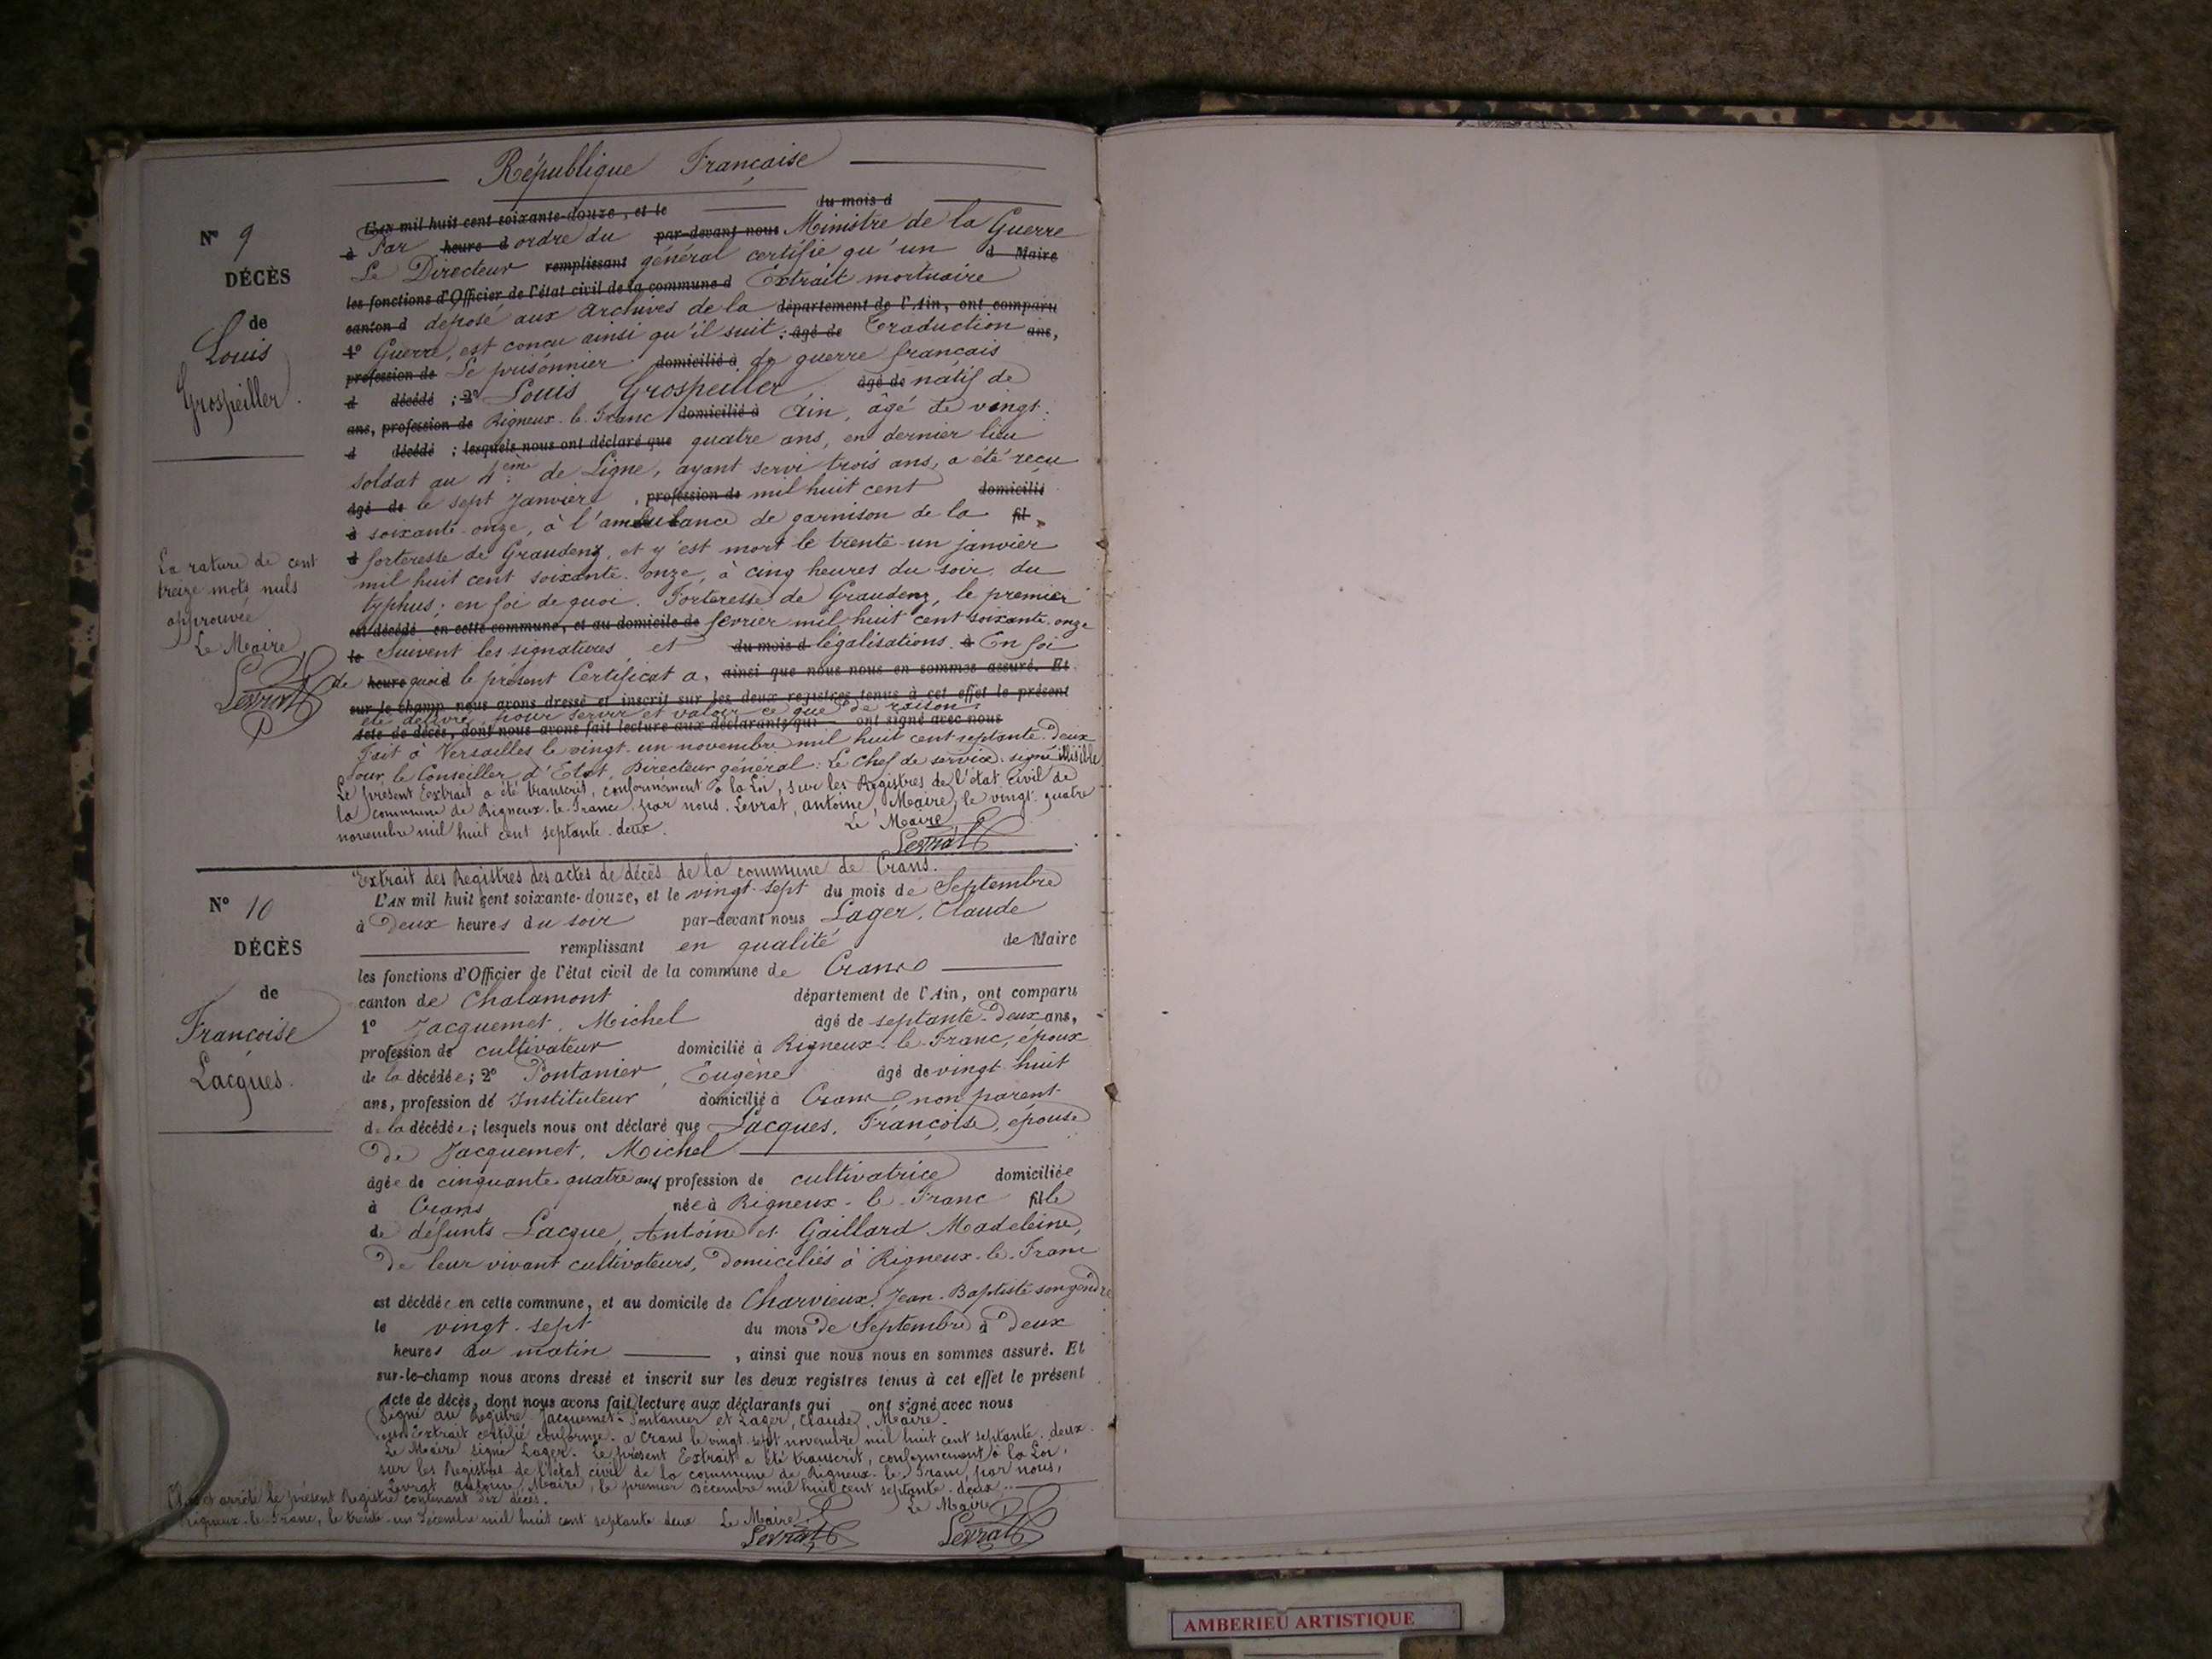 République Française
L'AN mil huit cent soixante-douze, et le du mois d
N° 9
à Par heure d ordre du par-devant nous Ministre de la Guerre
Le Directeur remplissant général certifie qu'un d Maire
DÉCÈS
les fonctions d'Officier de l'état civil de la commune d Extrait mortuaire
canton d déposé aux archives de la département de l'Ain, ont comparu
de
1° Guerre, est conçu ainsi qu'il suit : âgé de Traduction ans,
Louis
profession de Le prisonnier domicilié à de guerre français
Grospeiller.
d décédé ; 2° Louis Grospeiller âgé de natif de
ans, profession de Rigneux-le-Franc domicilié à Ain, âgé de vingt-
d décédé ; lesquels nous ont déclaré que quatre ans, en dernier lieu
soldat au 4ème de Ligne, ayant servi trois ans, a été reçu
âgé de le sept Janvier, profession de mil huit cent domicilié
à soixante-onze, à l'ambulance de garnison de la fil
d forteresse de Graudenz, et y est mort le trente-un janvier
mil huit cent soixante-onze, à cinq heures du soir, du
typhus; en foi de quoi. Forteresse de Graudenz, le premier
est décédé en cette commune, et au domicile de février mil huit cent soixante-onze
le Suivent les signatures et du mois d légalisations. à En foi
de heure quoi d le présent Certificat a, ainsi que nous nous en sommes assuré. Et
sur-le-champ nous avons dressé et inscrit sur les deux registres tenus à cet effet le présent
été délivré pour servir et valoir ce que de raison.
Acte de décès, dont nous avons fait lecture aux déclarants qui ont signé avec nous
Fait à Versailles le vingt-un novembre mil huit cent septante-deux
Pour le Conseiller d'Etat, Directeur général: Le Chef de service: signé illisible
Le présent Extrait a été transcrit, conformément à la Loi, sur les Registres de l'état civil de
la commune de Rigneux-le-Franc, par nous, Levrat, antoine, Maire, le vingt-quatre
novembre mil huit cent septante-deux. Le Maire
Levrat
La rature de cent
treize mots nuls
approuvée
Le Maire
Levrat
Extrait des Registres des actes de décès de la commune de Crans.
L'AN mil huit cent soixante-douze, et le vingt-sept du mois de Septembre
N° 10
à Deux heures du soir par-devant nous Lager, Claude
DÉCÈS
remplissant en qualité de Maire
les fonctions d'Officier de l'état civil de la commune de Crans
de
canton de Chalamont département de l'Ain, ont comparu
Françoise
1° Jacquemet, Michel âgé de septante-Deux ans,
profession de cultivateur domicilié à Rigneux-le-Franc, époux
Lacques.
de la décédée; 2° Pontanier, Eugène âgé de vingt-huit
ans, profession de Instituteur domicilié à Crans, non parent
de la décédée; lesquels nous ont déclaré que Lacques, Françoise, épouse
De Jacquemet, Michel
âgée de cinquante-quatre ans profession de cultivatrice domiciliée
à Crans née à Rigneux-le-Franc fille
de défunts Lacque, Antoine et Gaillard Madeleine,
De leur vivant cultivateurs, Domiciliés à Rigneux-le-Franc
est décédée en cette commune, et au domicile de Charvieux, Jean-Baptiste son gendre
le vingt-sept du mois De Septembre à Deux
heures du matin, ainsi que nous nous en sommes assuré. Et
sur-le-champ nous avons dressé et inscrit sur les deux registres tenus à cet effet le présent
Acte de décès, dont nous avons fait lecture aux déclarants qui ont signé avec nous
Signé au Registre Jacquemet- Pontanier et Lager, Claude, Maire.
Extrait certifié conforme. à Crans le vingt-sept novembre mil huit cent septante-deux.
Le Maire signé Lager. Le présent Extrait a été transcrit, conformément à la Loi,
sur les Registres de l'état civil de la commune de Rigneux-le-Franc, par nous,
Levrat antoine, Maire, le premier Décembre mil huit cent septante-deux.
Le Maire
Levrat
et arrêté le présent Registre contenant Dix décès.
Rigneux-le-Franc, le trente-un Décembre mil huit cent septante deux Le Maire
Levrat
AMBERIEU ARTISTIQUE